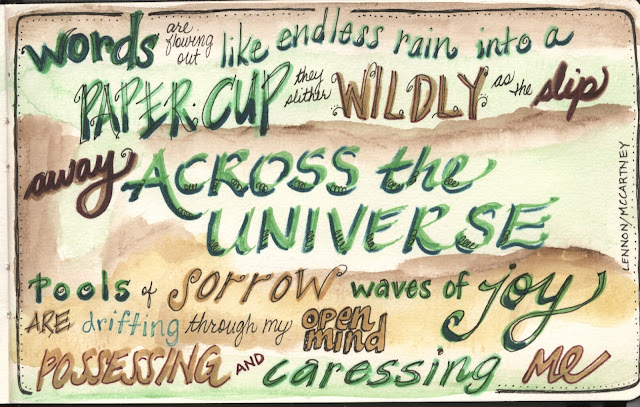 words are flowing out like endless rain into a
PAPER CUP they slither WILDLY as the slip
away ACROSS the
UNIVERSE
pools of sorrow waves of joy
ARE drifting through my open mind
POSSESSING AND caressing me
LENNON/MCCARTNEY